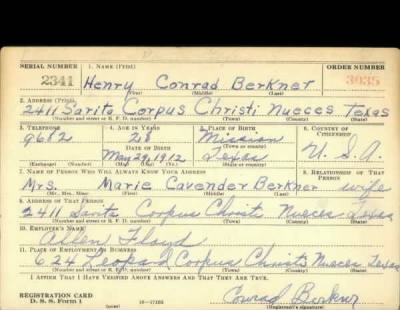 SERIAL NUMBER 1. NAME (Print) ORDER NUMBER
2341 Henry Conrad Berkner 3035
(First) (Middle) (Last)
2. ADDRESS (Print)
2411 Sarita Corpus Christi Nueces Texas
(Number and street or R. F. D. number) (Town) (County) (State)
3. TELEPHONE 4. AGE IN YEARS 5. PLACE OF BIRTH 6. COUNTRY OF CITIZENSHIP
9682 28 Mission
DATE OF BIRTH (Town or county)
May 29, 1912 Texas U. S. A.
(Exchange) (Number) (Mo.) (Day) (Yr.) (State or country)
7. NAME OF PERSON WHO WILL ALWAYS KNOW YOUR ADDRESS 8. RELATIONSHIP OF THAT PERSON
Mrs. Marie Cavender Berkner wife
(Mr., Mrs., Miss) (First) (Middle) (Last)
9. ADDRESS OF THAT PERSON
2411 Sarita Corpus Christi Nueces Texas
(Number and street or R. F. D. number) (Town) (County) (State)
10. EMPLOYER'S NAME
Floyd
11. PLACE OF EMPLOYMENT OR BUSINESS
624 Leopard Corpus Christi Nueces Texas
(Number and street or R. F. D. number) (Town) (County) (State)
I AFFIRM THAT I HAVE VERIFIED ABOVE ANSWERS AND THAT THEY ARE TRUE.
REGISTRATION CARD
D. S. S. Form 1 16-17105 Conrad Berkner
(Registrant's signature)